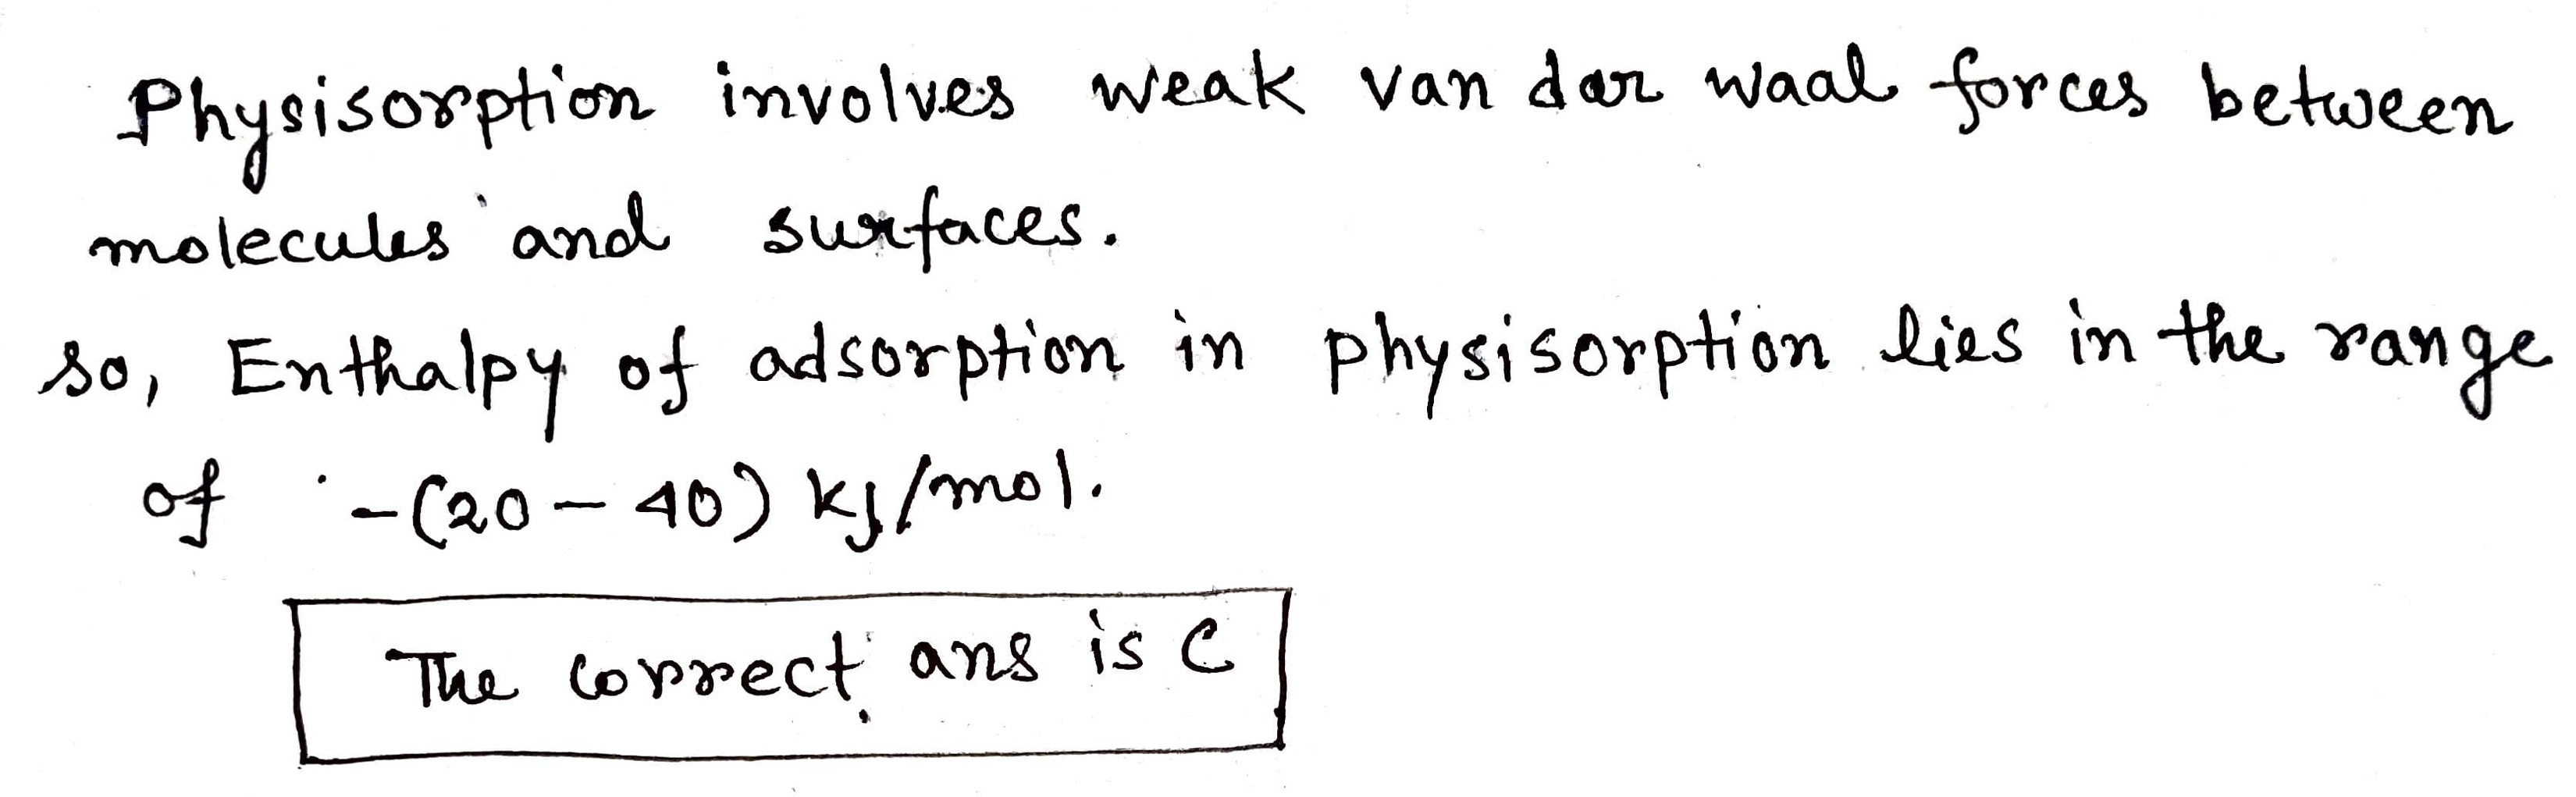 Physisorption involves weak van dar waal forces between
molecules and surfaces.
so, Enthalpy of adsorption in physisorption lies in the range
of -(20-40) kJ/mol.
The correct ans is C